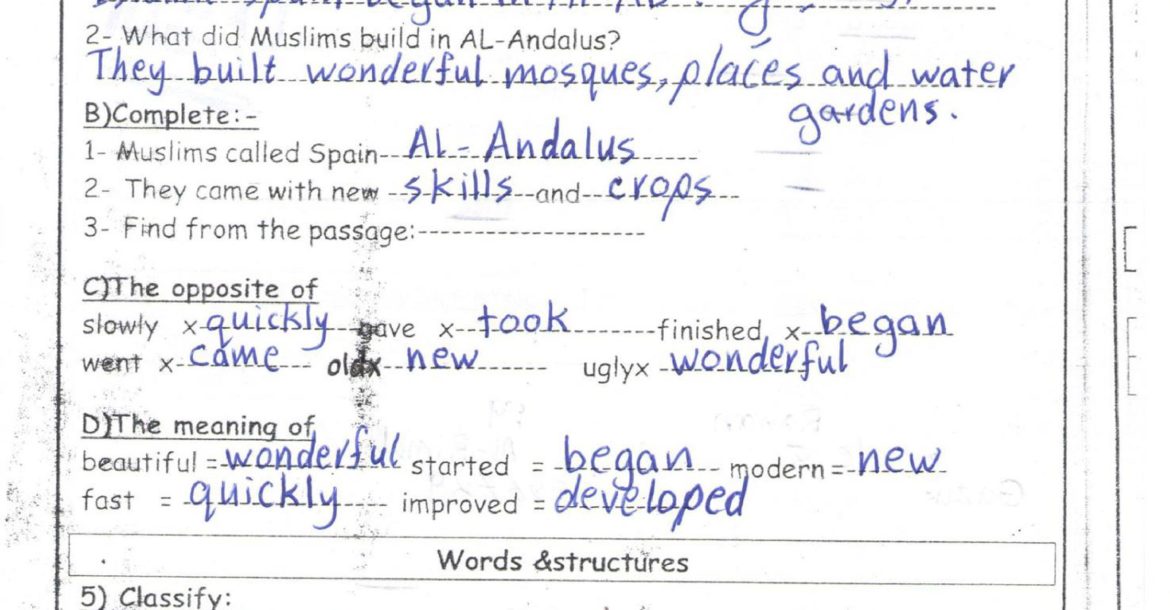 Spain began in
2- What did Muslims build in AL-Andalus?
They built wonderful mosques, places and water
gardens.
B)Complete:-
1- Muslims called Spain---AL-Andalus------
2- They came with new --skills--and--crops---
3- Find from the passage:--------------------
C)The opposite of
slowly x-quickly---gave x--took--------finished x--began
went x-came--- oldx--new------ uglyx -wonderful
D)The meaning of
beautiful =-wonderful started = -began-- modern=-new-
fast = -quickly---- improved =-developed
Words &structures
5) Classify: